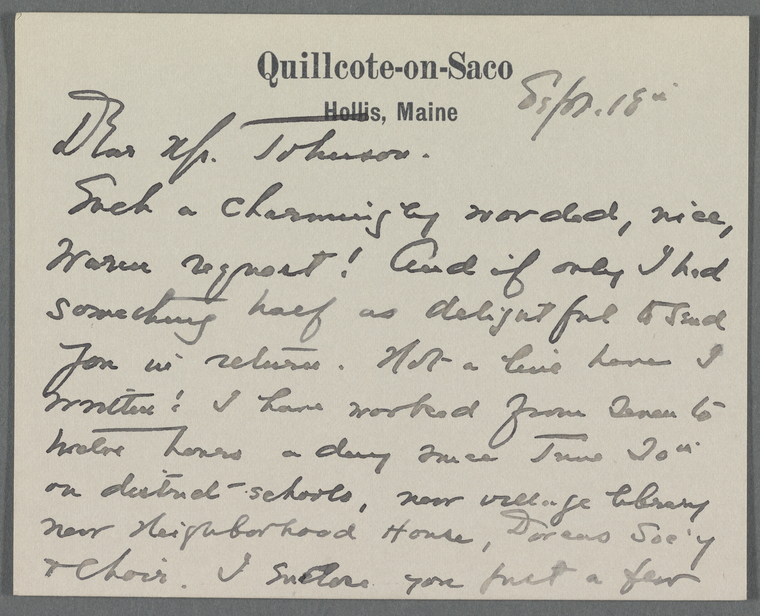 Quillcote-on-Saco
Hollis, Maine
Sept. 18th
Dear Mr. Johnson.
Such a charmingly worded, nice,
warm request! And if only I had
something half as delightful to send
you in return. Not a line have I
written! I have worked from seven to
twelve hours a day since June 20th
on district-schools, new village library
new Neighborhood House, Dorcas Soc'y
& Choir. I enclose you just a few